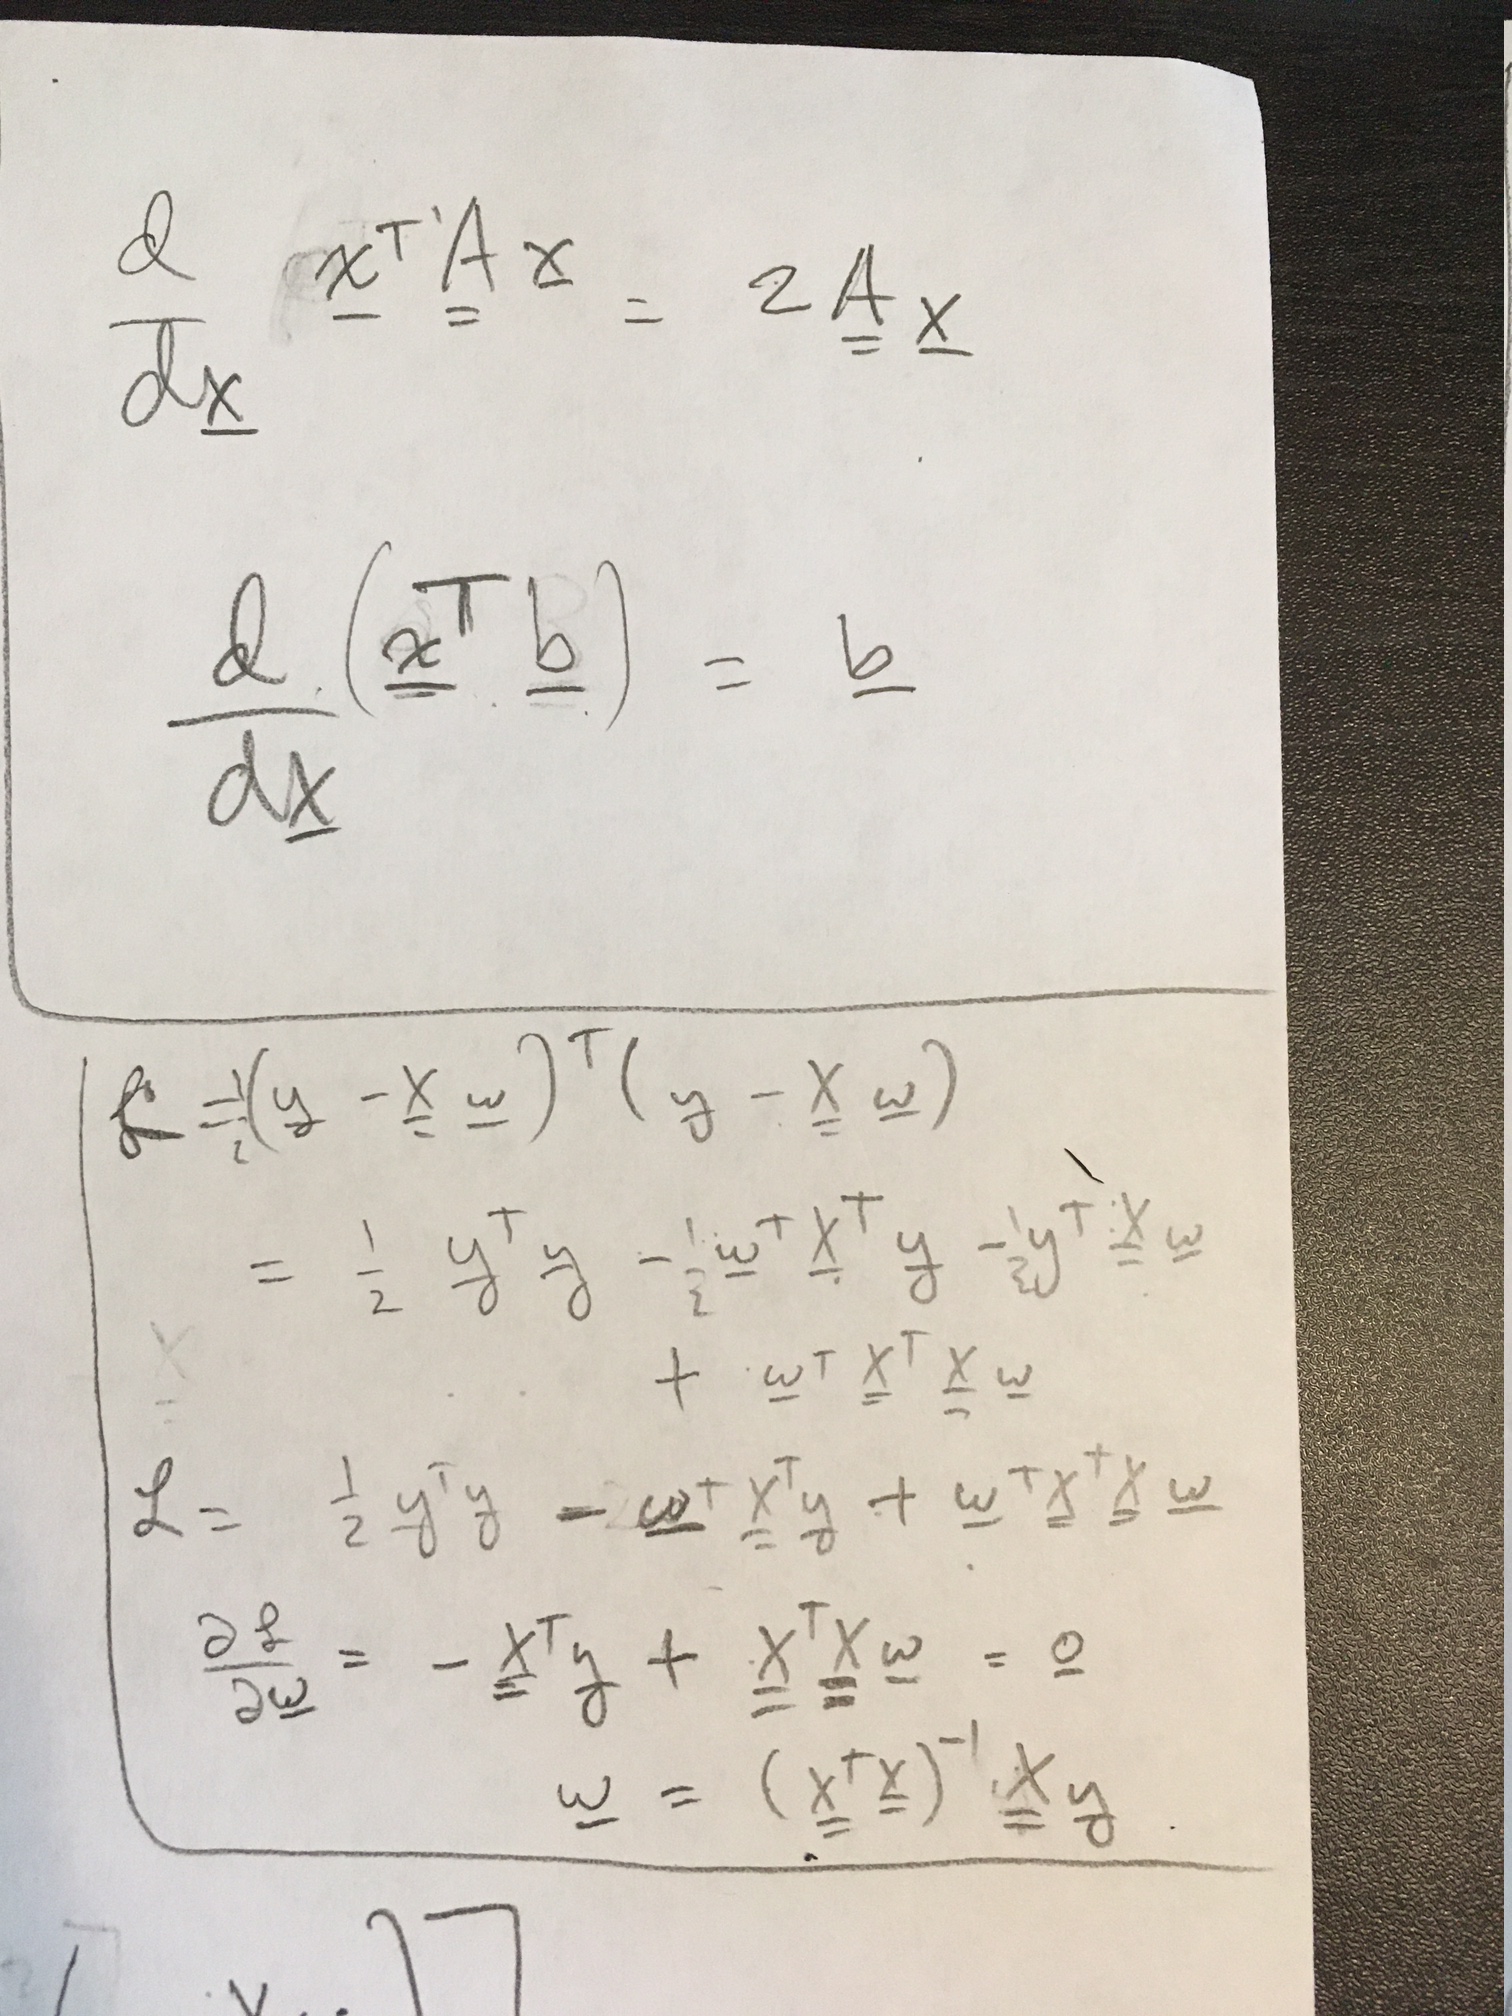 d/dx xᵀ A x = 2 A x
d/dx (xᵀ b) = b
ℒ = ½(y - X w)ᵀ(y - X w)
= ½ yᵀy - ½ wᵀ Xᵀ y - ½ yᵀ X w
+ wᵀ Xᵀ X w
X
ℒ = ½ yᵀy - wᵀ Xᵀy + wᵀXᵀX w
∂ℒ/∂w = - Xᵀy + XᵀX w = 0
w = (XᵀX)⁻¹ X y